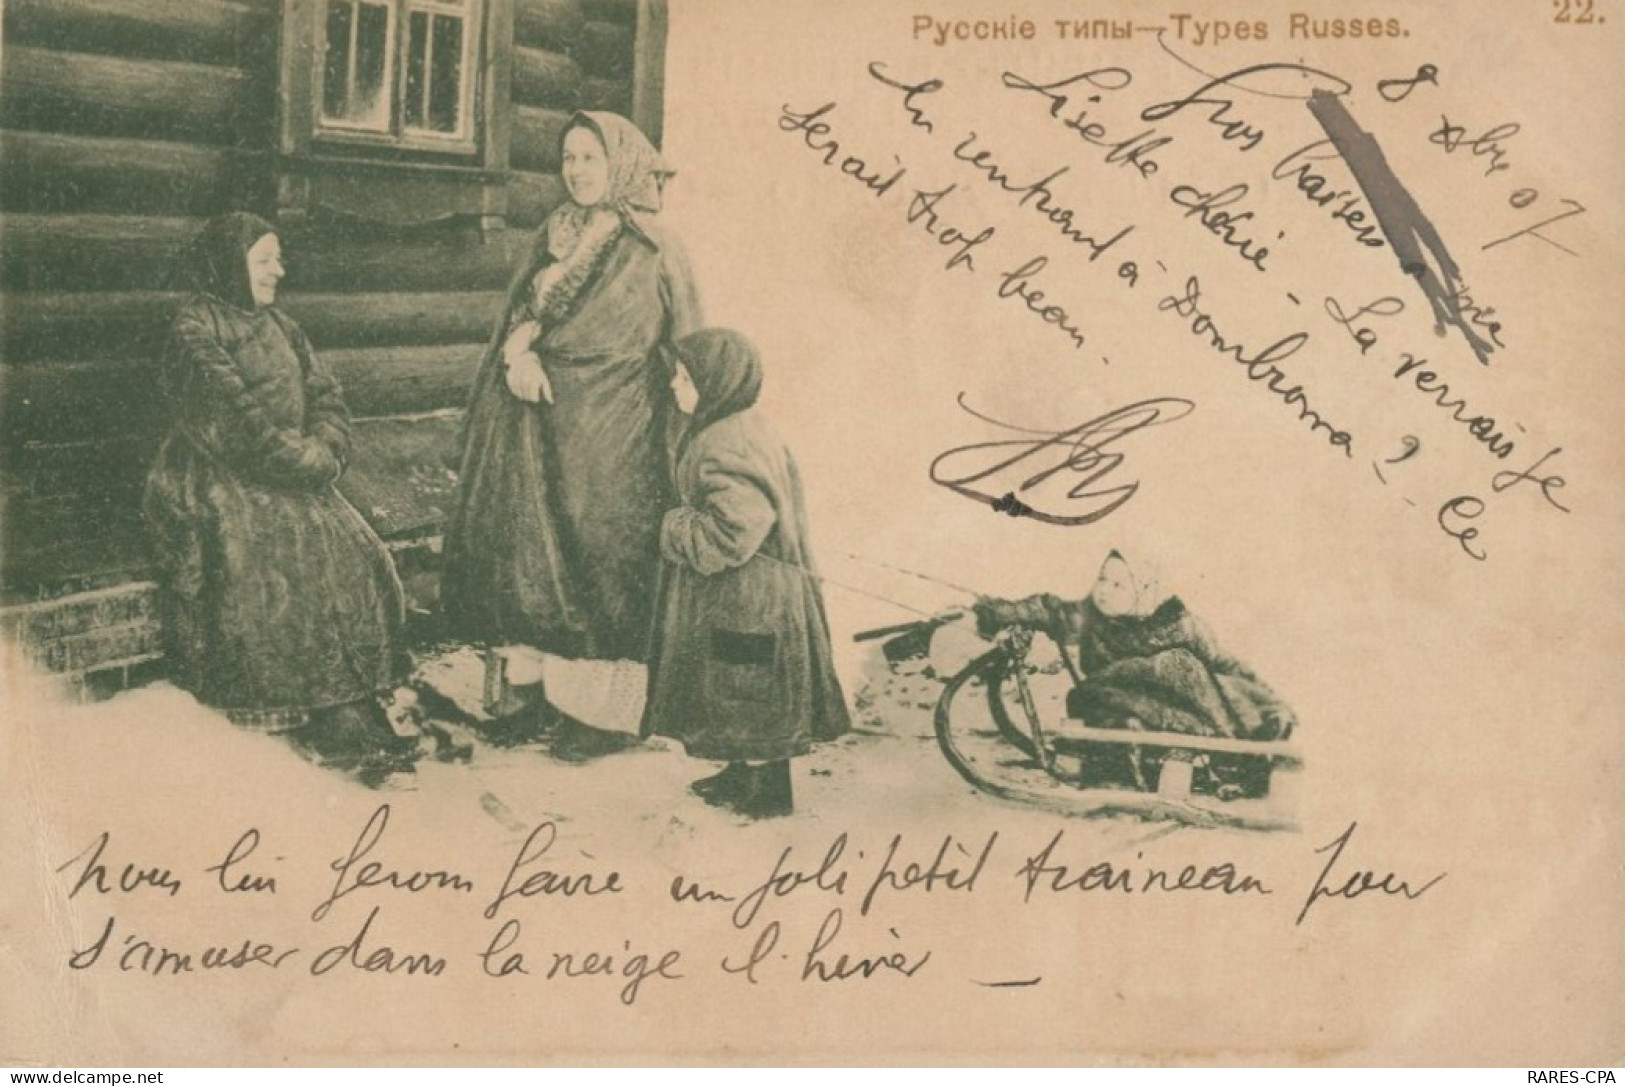 22.
Русскіе типы—Types Russes.
8 Xbre 07
Gros baisers à ma
Lisette chérie - La verrais je
en rentrant à Dombrowa ? - Ce
serait trop beau.
nous lui ferons faire un joli petit traineau pour
s'amuser dans la neige l'hiver —
delcampe.net
RARES-CPA